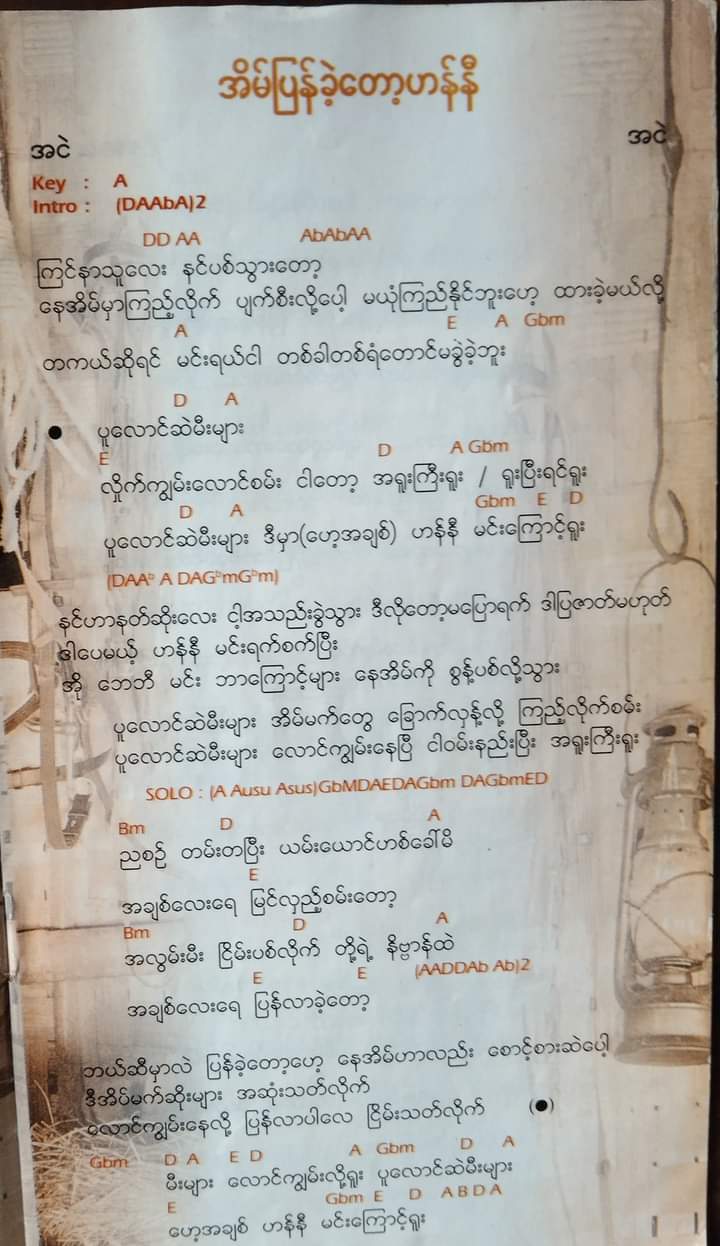 အိမ်ပြန်ခဲ့တော့ဟန်နီ
အငဲ အငဲ
Key : A
Intro : (DAAbA)2
DD AA AbAbAA
ကြင်နာသူလေး နင်ပစ်သွားတော့
နေအိမ်မှာကြည့်လိုက် ပျက်စီးလို့ပေါ့ မယုံကြည်နိုင်ဘူးဟေ့ ထားခဲ့မယ်လို့
A E A Gbm
တကယ်ဆိုရင် မင်းရယ်ငါ တစ်ခါတစ်ရံတောင်မခွဲခဲ့ဘူး
D A
● ပူလောင်ဆဲမီးများ
E D A Gbm
လှိုက်ကျွမ်းလောင်စမ်း ငါတော့ အရူးကြီးရူး / ရူးပြီးရင်ရူး
D A Gbm E D
ပူလောင်ဆဲမီးများ ဒီမှာ(ဟေ့အချစ်) ဟန်နီ မင်းကြောင့်ရူး
(DAAᵇ A DAGᵇmGᵇm)
နင်ဟာနတ်ဆိုးလေး ငါ့အသည်းခွဲသွား ဒီလိုတော့မပြောရက် ဒါပြဇာတ်မဟုတ်
ဒါပေမယ့် ဟန်နီ မင်းရက်စက်ပြီး
အို ဘေဘီ မင်း ဘာကြောင့်များ နေအိမ်ကို စွန့်ပစ်လို့သွား
ပူလောင်ဆဲမီးများ အိမ်မက်တွေ ခြောက်လှန့်လို့ ကြည့်လိုက်စမ်း
ပူလောင်ဆဲမီးများ လောင်ကျွမ်းနေပြီ ငါဝမ်းနည်းပြီး အရူးကြီးရူး
SOLO : (A Ausu Asus)GbMDAEDAGbm DAGbmED
Bm D A
ညစဉ် တမ်းတပြီး ယမ်းယောင်ဟစ်ခေါ်မိ
E
အချစ်လေးရေ မြင်လှည့်စမ်းတော့
Bm D A
အလွမ်းမီး ငြိမ်းပစ်လိုက် တို့ရဲ့ နိဗ္ဗာန်ထဲ
E E (AADDAb Ab)2
အချစ်လေးရေ ပြန်လာခဲ့တော့
ဘယ်ဆီမှာလဲ ပြန်ခဲ့တော့ဟေ့ နေအိမ်ဟာလည်း စောင့်စားဆဲပေါ့
ဒီအိပ်မက်ဆိုးများ အဆုံးသတ်လိုက်
လောင်ကျွမ်းနေလို့ ပြန်လာပါလေ ငြိမ်းသတ်လိုက် (●)
Gbm D A E D A Gbm D A
မီးများ လောင်ကျွမ်းလို့ရူး ပူလောင်ဆဲမီးများ
E Gbm E D A B D A
ဟေ့အချစ် ဟန်နီ မင်းကြောင့်ရူး